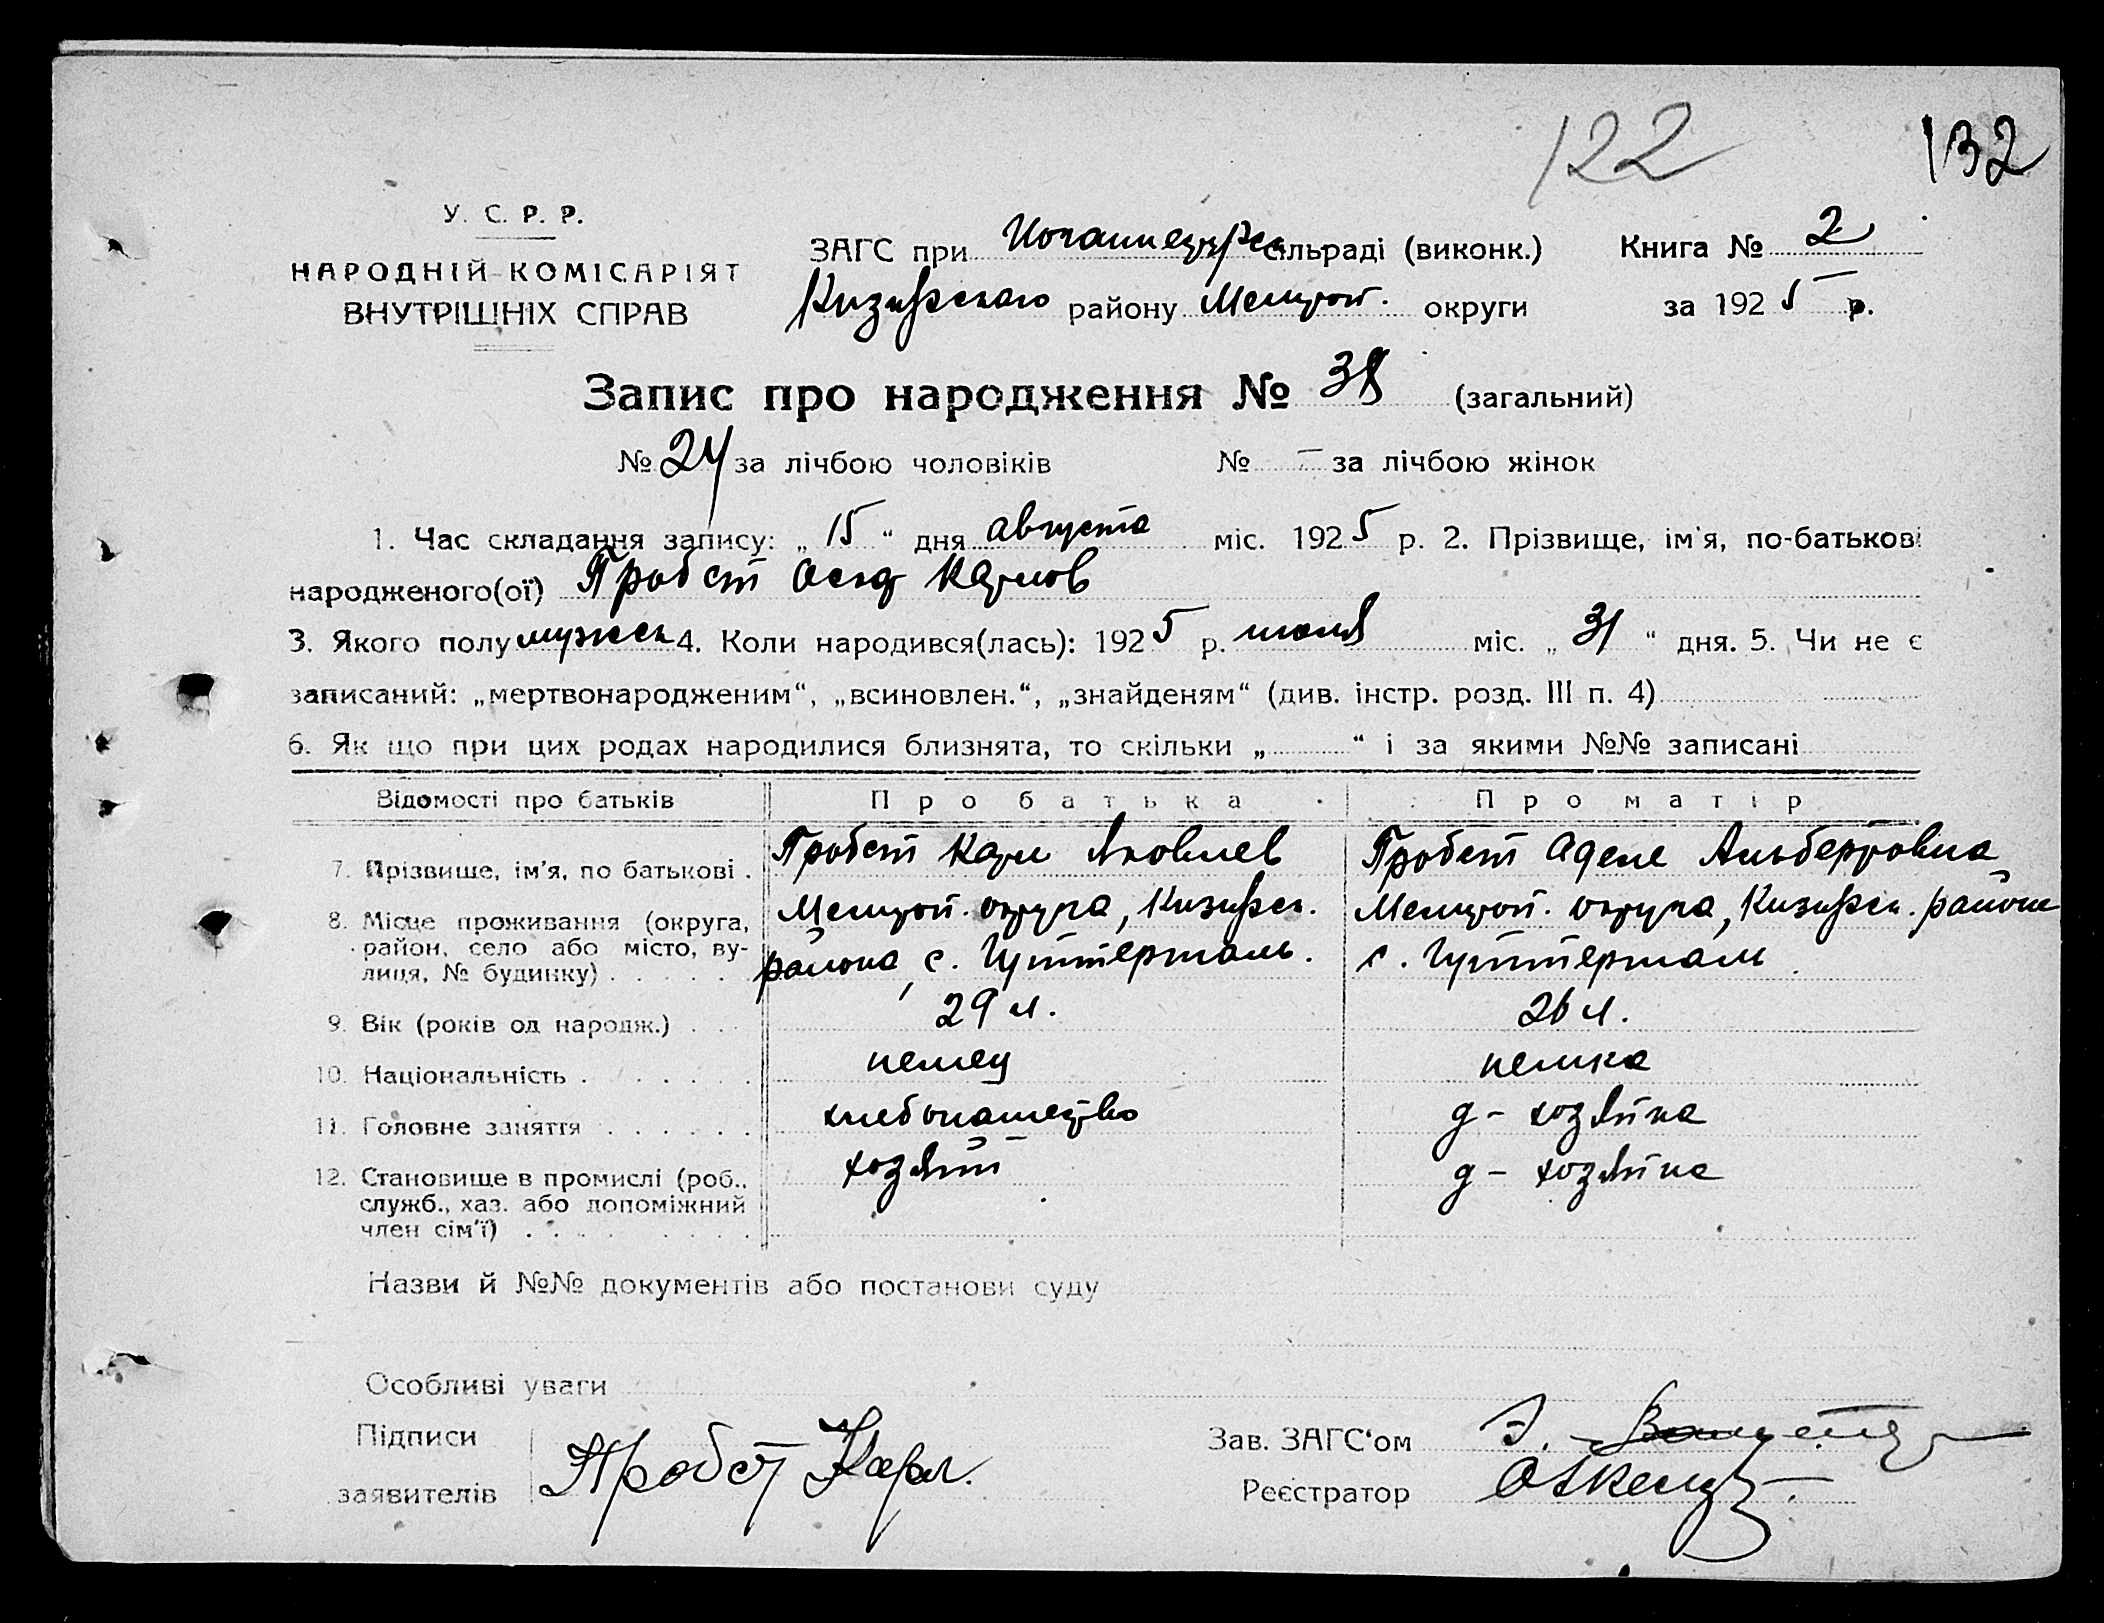 122
132
У. С. Р. Р.
НАРОДНІЙ КОМІСАРІЯТ
ВНУТРІШНІХ СПРАВ
ЗАГС при сільраді (виконк.) Книга № 2
району округи за 1925 р.
Запис про народження № 38 (загальний)
№ 24 за лічбою чоловіків № – за лічбою жінок
1. Час складання запису: „ 15 “ дня августа міс. 1925 р. 2. Прізвище, ім'я, по-батькові
народженого(ої) Пробст Карлов
3. Якого полу мужск 4. Коли народився(лась): 1925 р. июля міс. „ 31 “ дня. 5. Чи не є
записаний: „мертвонародженим“, „всиновлен.“, „знайденям“ (див. інстр. розд. III п. 4)
6. Як що при цих родах народилися близнята, то скільки „ “ і за якими №№ записані
Відомості про батьків Про батька Про матір
7. Прізвише, ім'я, по батькові . Пробст Карл Яковлев Пробст Аделе Альбертовна
8. Місце проживання (округа, район, село або місто, вулиця, № будинку) . . . . .
Мелитоп. округа, района, с. Гуттерталь.
Мелитоп. округа, район с. Гуттерталь
9. Вік (років од народж.) . . . 29 л. 26 л.
10. Національність . . . . . . немец немка
11. Головне заняття . . . . . . хлебопашество д – хозяйка
12. Становище в промислі (роб., служб., хаз. або допоміжний член сім'ї) . . . . . . хозяйн д – хозяйка
Назви й №№ документів або постанови суду
Особливі уваги
Підписи
заявителів Пробст Карл.
Зав. ЗАГС'ом
Реєстратор